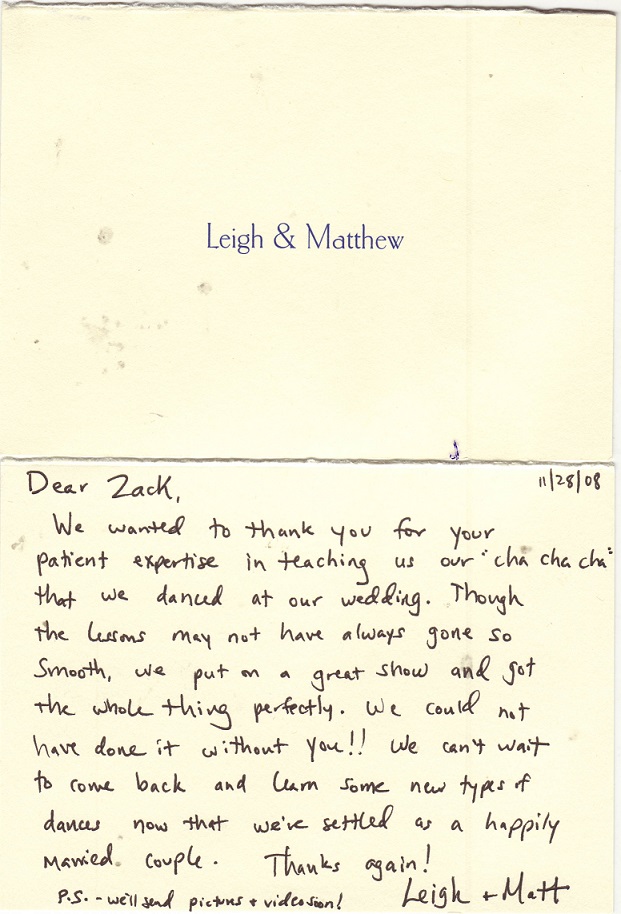 Leigh & Matthew
Dear Zack,
11/28/08
We wanted to thank you for your
patient expertise in teaching us our "cha cha cha"
that we danced at our wedding. Though
the lessons may not have always gone so
smooth, we put on a great show and got
the whole thing perfectly. We could not
have done it without you!! We can't wait
to come back and learn some new types of
dances now that we've settled as a happily
married couple. Thanks again!
P.S. - we'll send pictures + video soon!
Leigh + Matt